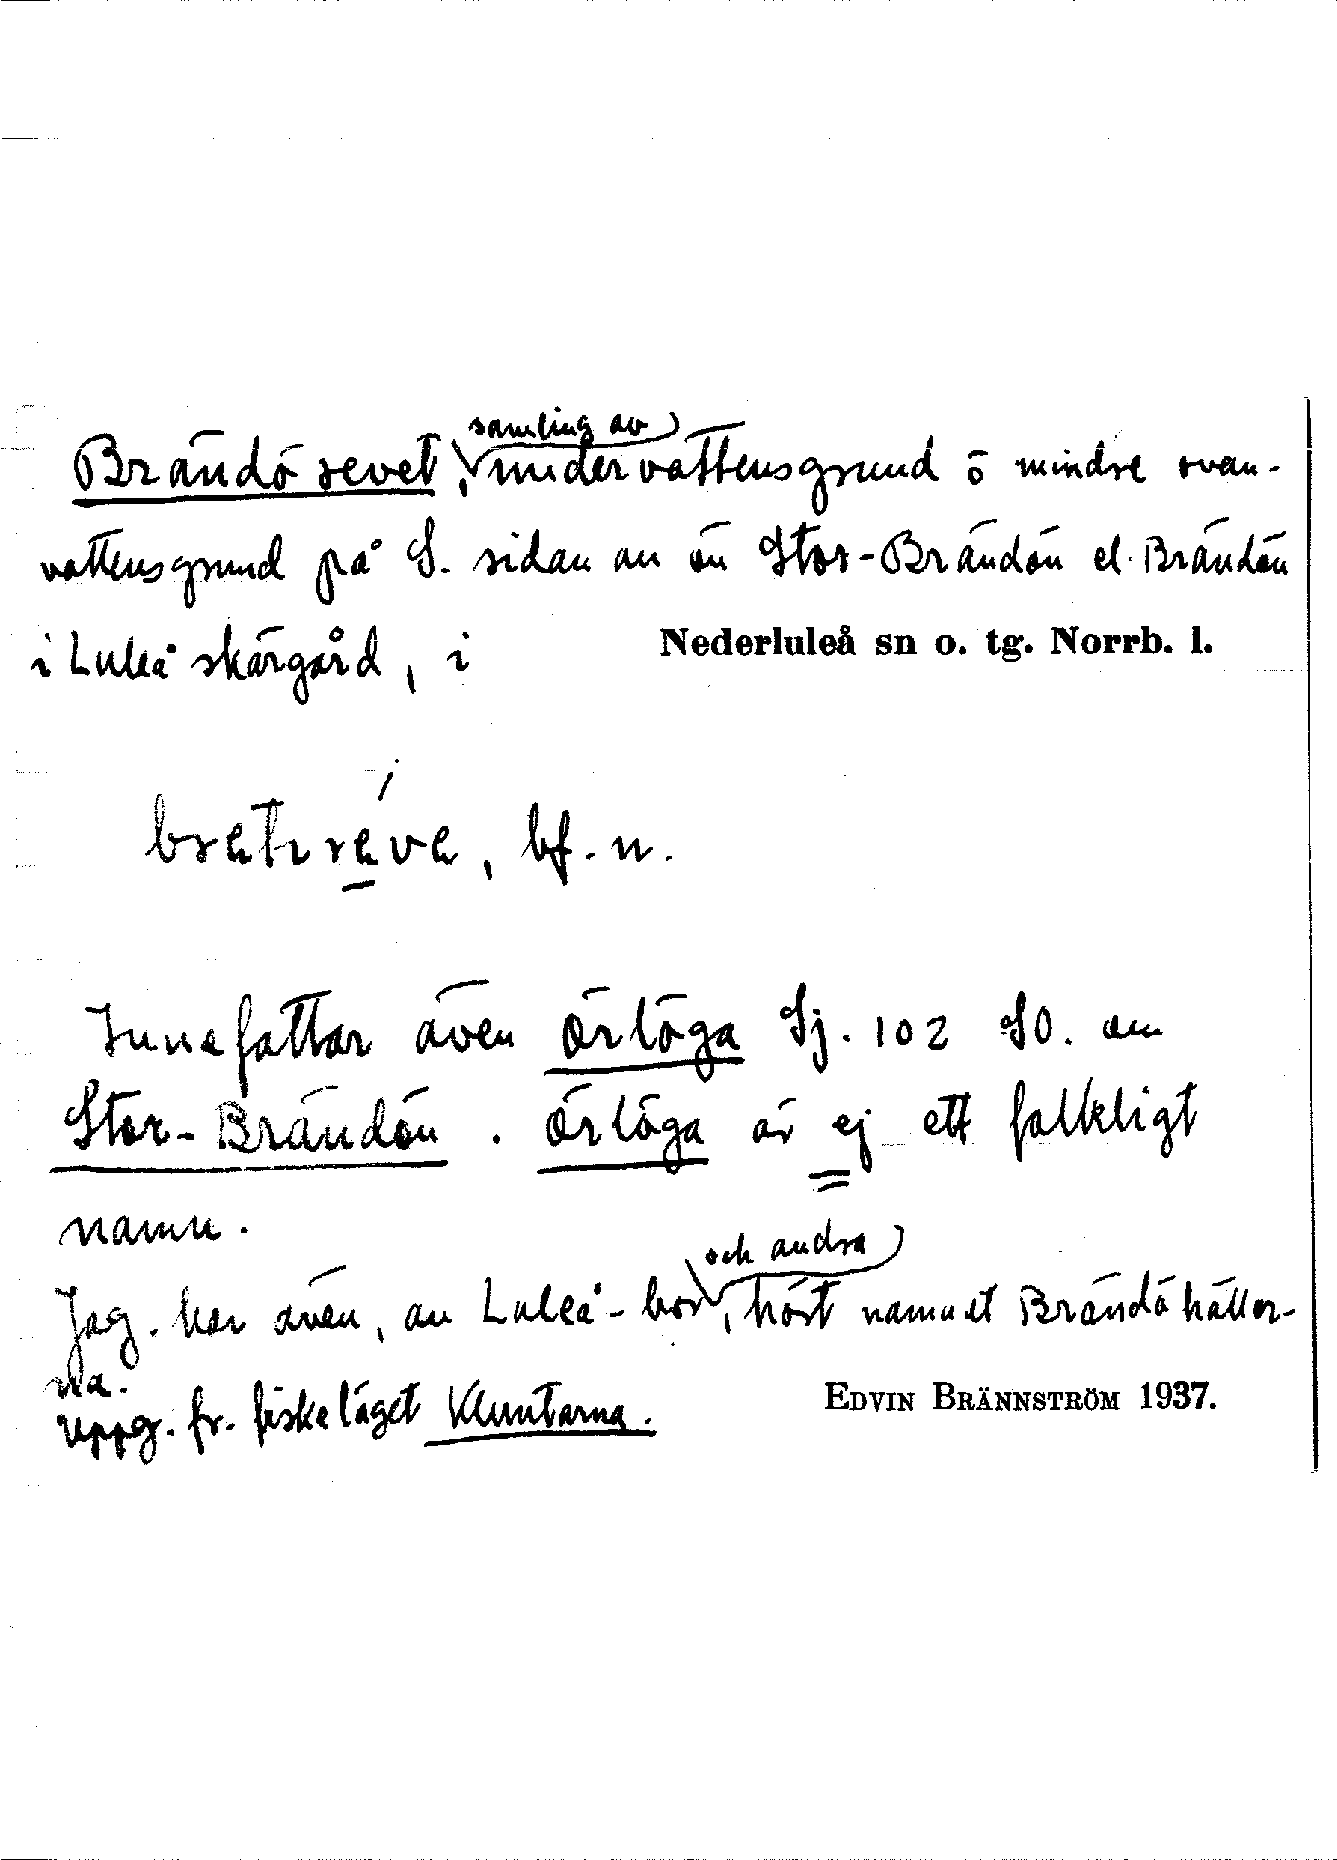 Brändörevet, samling av undervattensgrund o mindre ovan-
vattensgrund på S. sidan av ön Stor-Brändön el. Brändön
i Luleå skärgård, i Nederluleå sn o. tg. Norrb. l.
bf. n.
Innefattar även Örlöga Sj. 102 SO. om
Stor-Brändön. Örlöga är ej ett folkligt
namn.
Jag har även, av Luleå-bor och andra, hört namnet Brändöhällor-
na.
Uppg. fr. fiskeläget Kluntarna. EDVIN BRÄNNSTRÖM 1937.